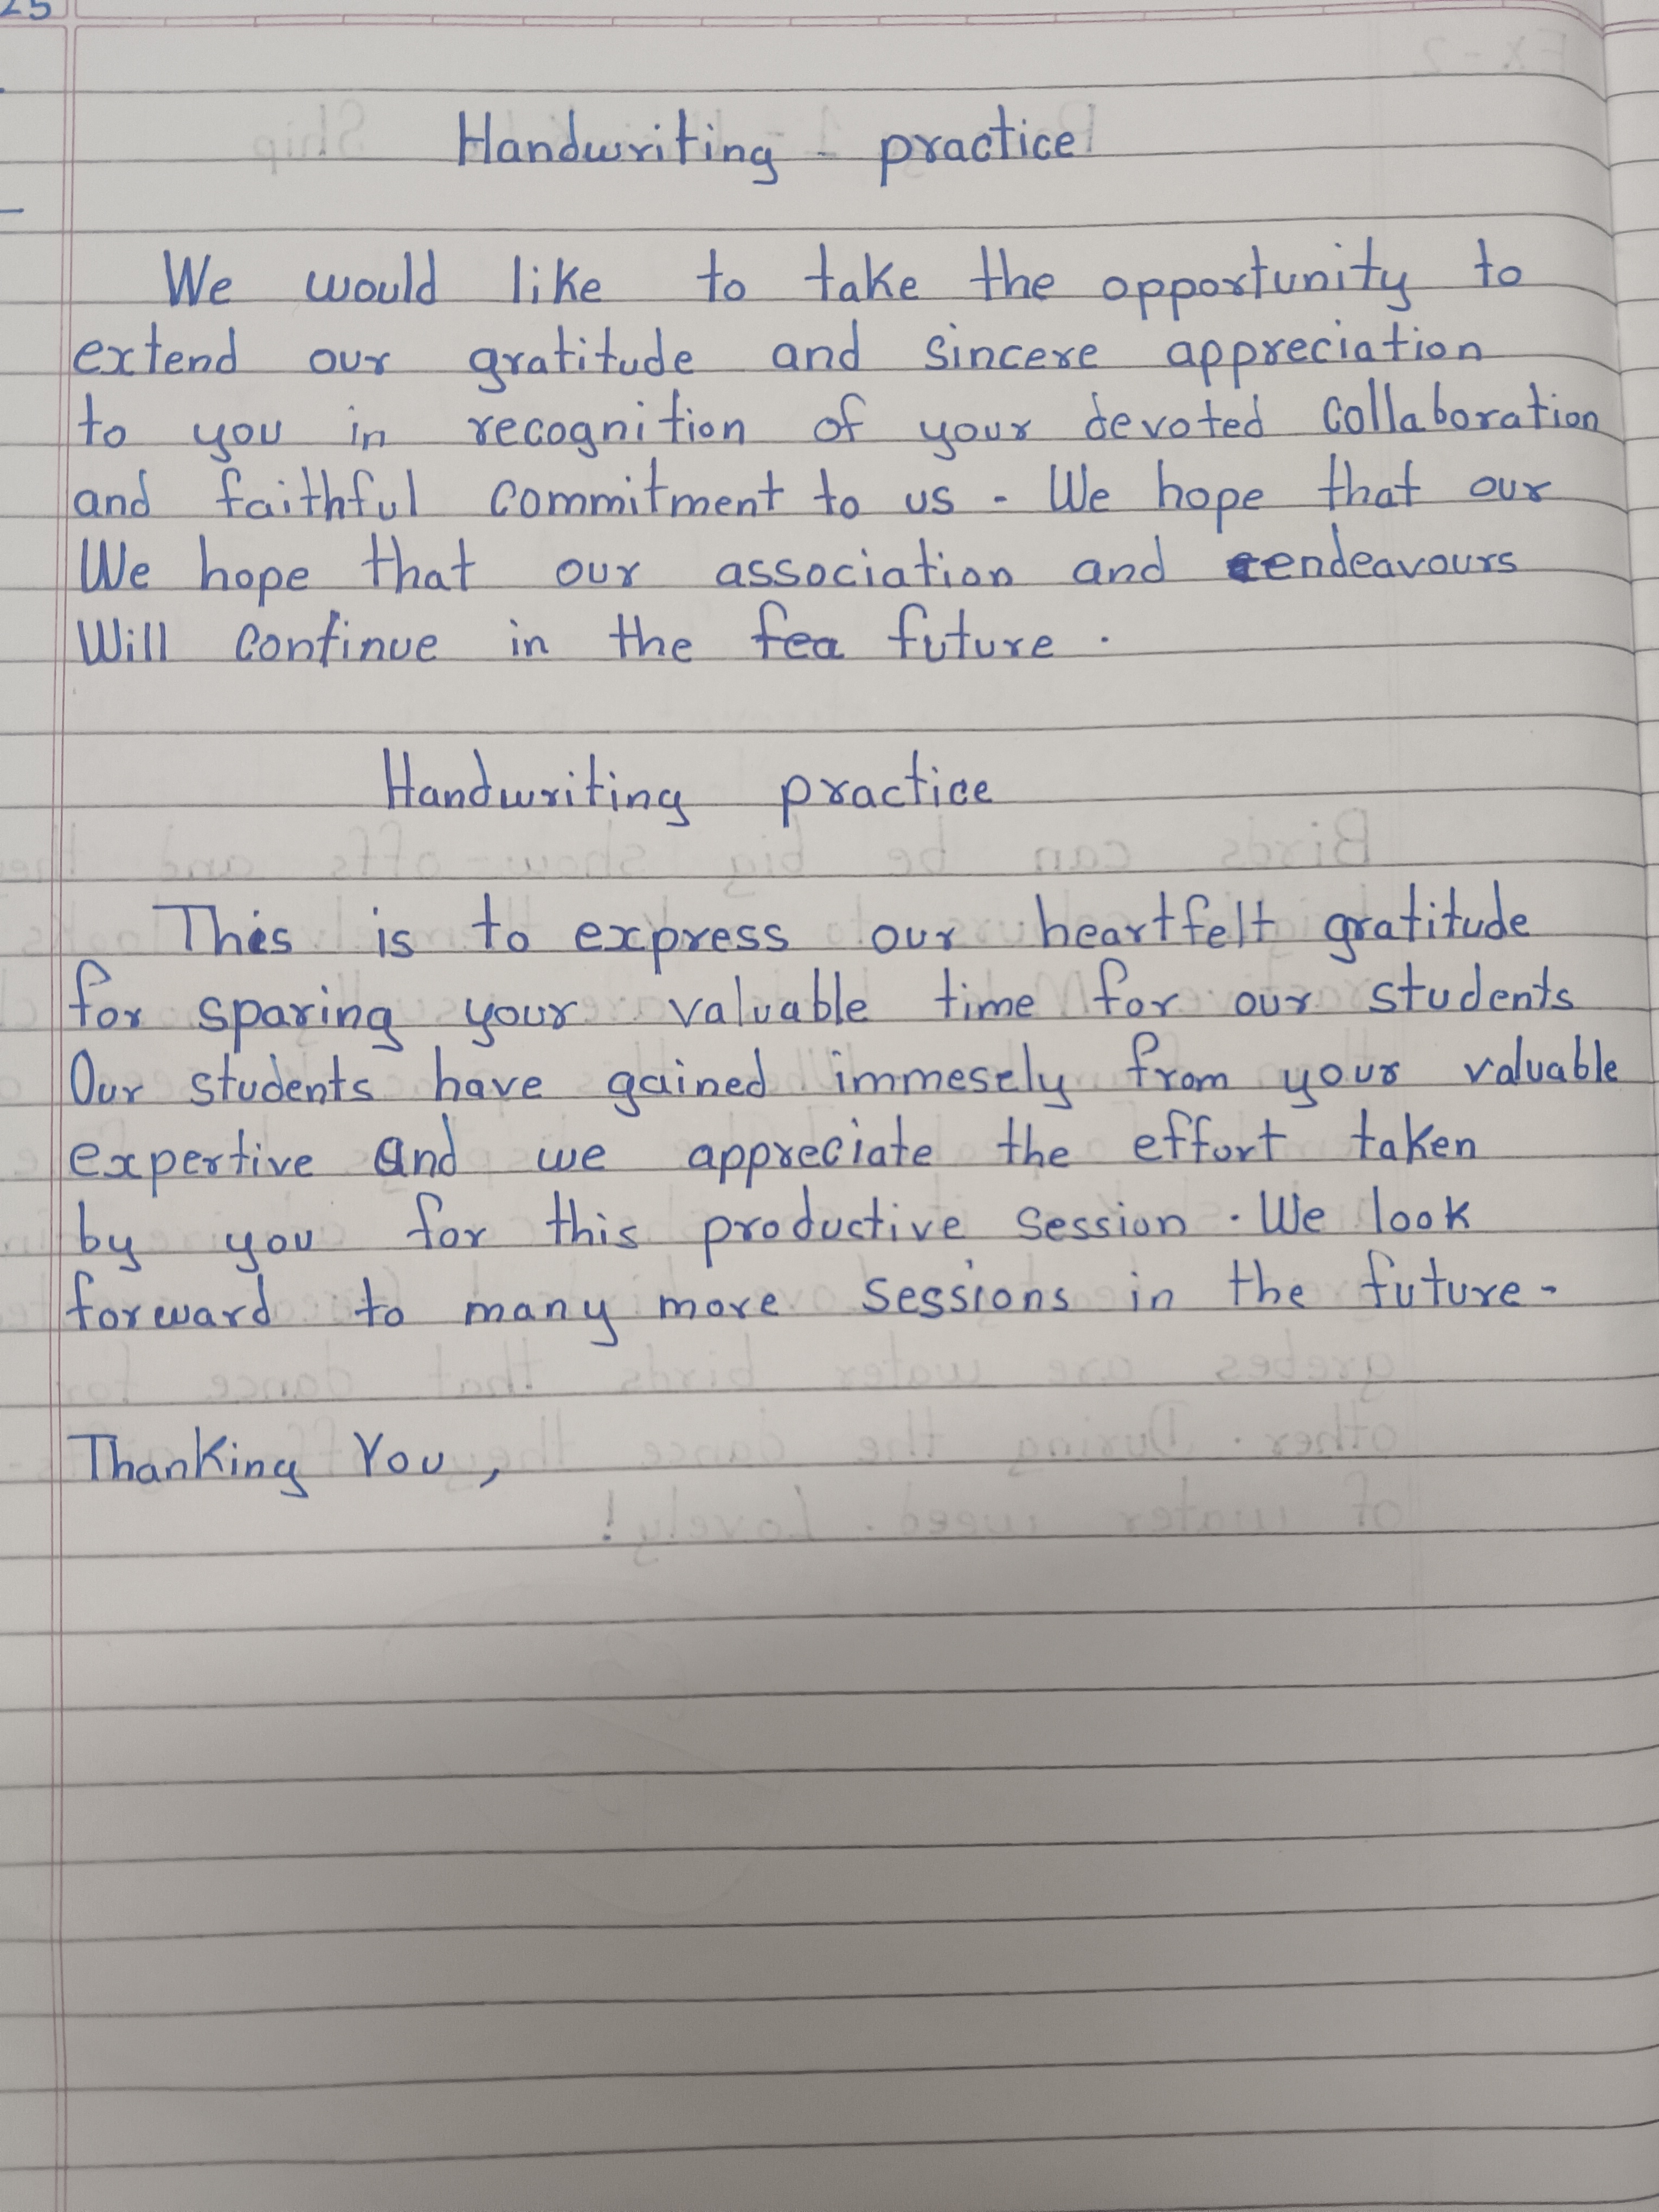 25
Handwriting - practice
We would like to take the opportunity to
extend our gratitude and sincere appreciation
to you in recognition of your devoted collaboration
and faithful commitment to us - We hope that our
We hope that our association and endeavours
Will continue in the fea future .
Handwriting practice
This is to express our heartfelt gratitude
for sparing your valuable time for our students
Our students have gained immesely from your valuable
expertive and we appreciate the effort taken
by you for this productive session . We look
forward to many more sessions in the future -
Thanking You ,